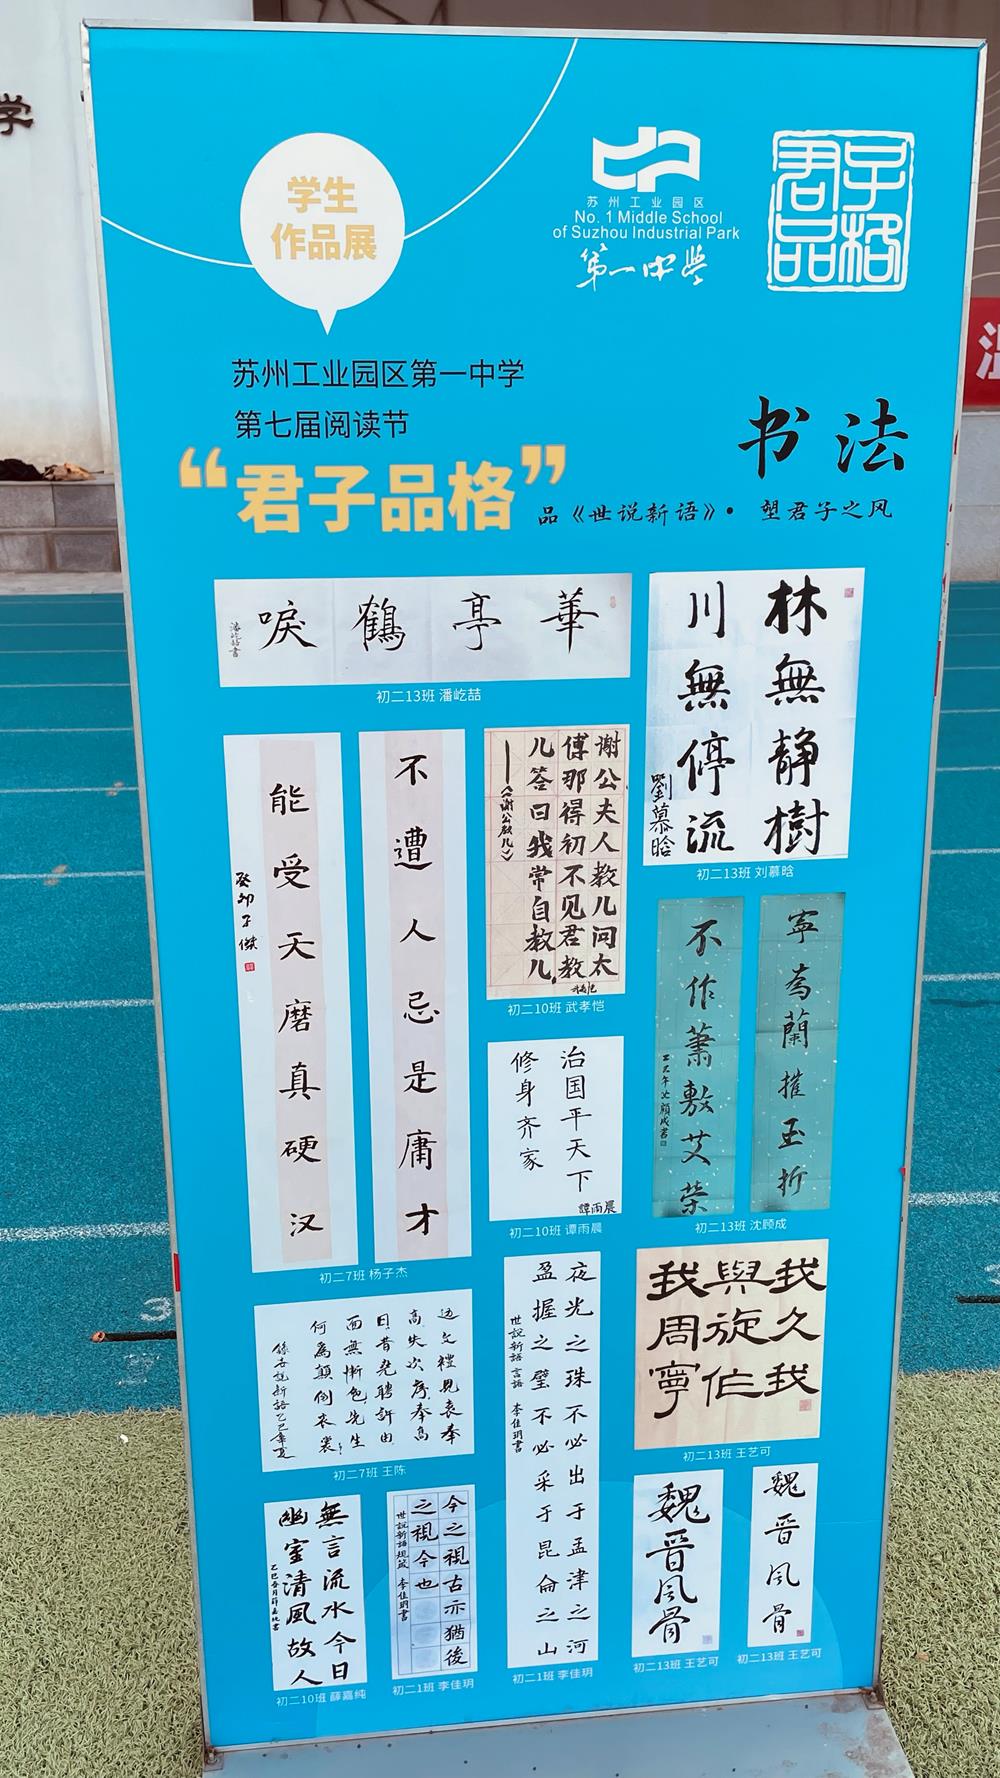 学
学生
作品展
苏州工业园区
No. 1 Middle School
of Suzhou Industrial Park
第一中学
君子
品格
苏州工业园区第一中学
第七届阅读节
“君子品格”
书法
品《世说新语》· 塑君子之风
華亭鶴唳
潘屹喆書
初二13班 潘屹喆
林無静樹
川無停流
劉慕晗
初二13班 刘慕晗
不遭人忌是庸才
能受天磨真硬汉
癸卯子傑
初二7班 杨子杰
谢公夫人教儿问太
傅那得初不见君教
儿答曰我常自教儿
——《谢公教儿》
初二10班 武孝恺
寧為蘭摧玉折
不作蕭敷艾荣
乙巳年沈顧成書
初二13班 沈顾成
治国平天下
修身齐家
譚雨晨
初二10班 谭雨晨
边文禮見袁奉
高失次序奉高
曰昔尧聘許由
面無慚色先生
何為顛倒衣裳
初二7班 王陈
夜光之珠不必出于孟津之河
盈握之璧不必采于昆侖之山
世說新語 言語 李佳玥書
初二1班 李佳玥
我久我
與旋作
我周寧
初二13班 王艺可
無言流水今日
幽室清風故人
初二10班 薛嘉纯
今之視古亦猶後
之視今也
世說新語規箴 李佳玥書
初二1班 李佳玥
魏晉风骨
初二13班 王艺可
魏晉风骨
初二13班 王艺可
3